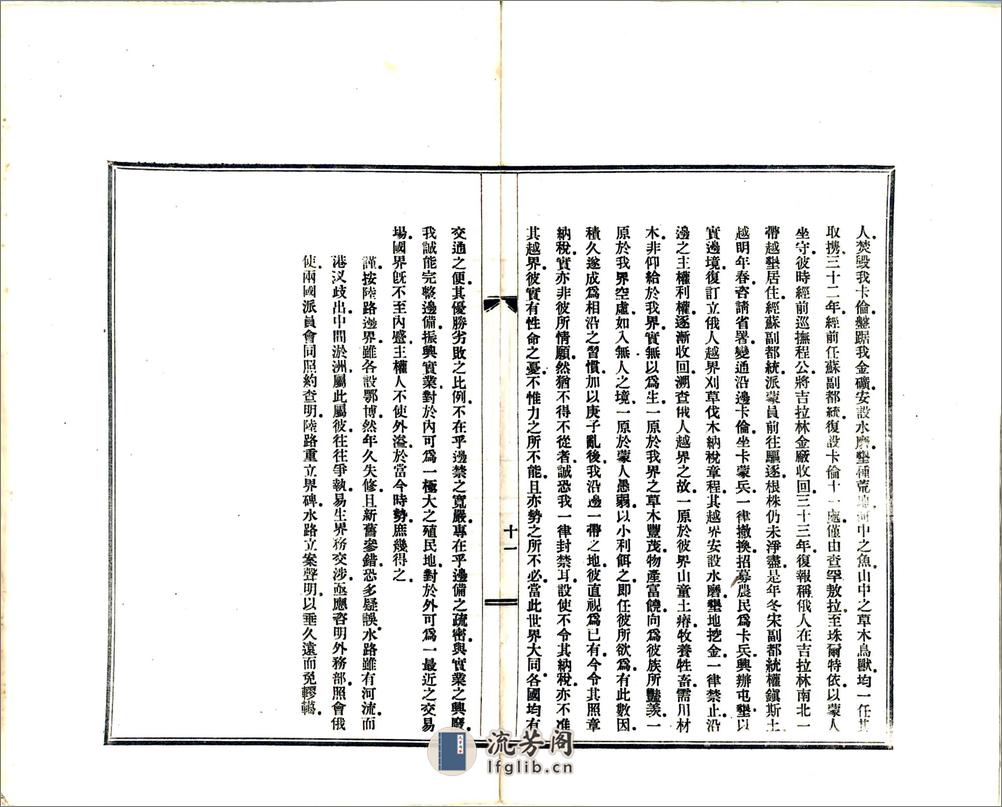 人焚毀我卡倫盤踞我金礦安設水磨墾種荒地河中之魚山中之草木鳥獸均一任其
取攜三十二年經前任蘇副都統復設卡倫十一處僅由查罕敖拉至珠爾特依以蒙人
坐守彼時經前巡撫程公將吉拉林金廠收回三十三年復報稱俄人在吉拉林南北一
帶越墾居住經蘇副都統派蒙員前往驅逐根株仍未淨盡是年冬宋副都統權鎮斯土
越明年春咨請省署變通沿邊卡倫坐卡蒙兵一律撤換招募農民爲卡兵興辦屯墾以
實邊境復訂立俄人越界刈草伐木納稅章程其越界安設水磨墾地挖金一律禁止沿
邊之主權利權逐漸收回溯查俄人越界之故一原於彼界山童土瘠牧養牲畜需用材
木非仰給於我界實無以爲生一原於我界之草木豐茂物產富饒向爲彼族所豔羨一
原於我界空虛如入無人之境一原於蒙人愚弱以小利餌之即任彼所欲爲有此數因
積久遂成爲相沿之習慣加以庚子亂後我沿邊一帶之地彼直視爲已有今令其照章
納稅實亦非彼所情願然猶不得不從者誠恐我一律封禁耳設使不令其納稅亦不准
其越界彼實有性命之憂不惟力之所不能且亦勢之所不必當此世界大同各國均有
十一
交通之便其優勝劣敗之比例不在乎邊禁之寬嚴專在乎邊備之疏密與實業之興廢
我誠能完整邊備振興實業對於內可爲一極大之殖民地對於外可爲一最近之交易
場國界旣不至內蹙主權人不使外溢於當今時勢庶幾得之
謹按陸路邊界雖各設鄂博然年久失修且新舊參錯恐多疑誤水路雖有河流而
港汊歧出中間淤洲屬此屬彼往往爭執易生界務交涉亟應咨明外務部照會俄
使兩國派員會同照約查明陸路重立界碑水路立案聲明以垂久遠而免轇轕
流芳阁
lfglib.cn